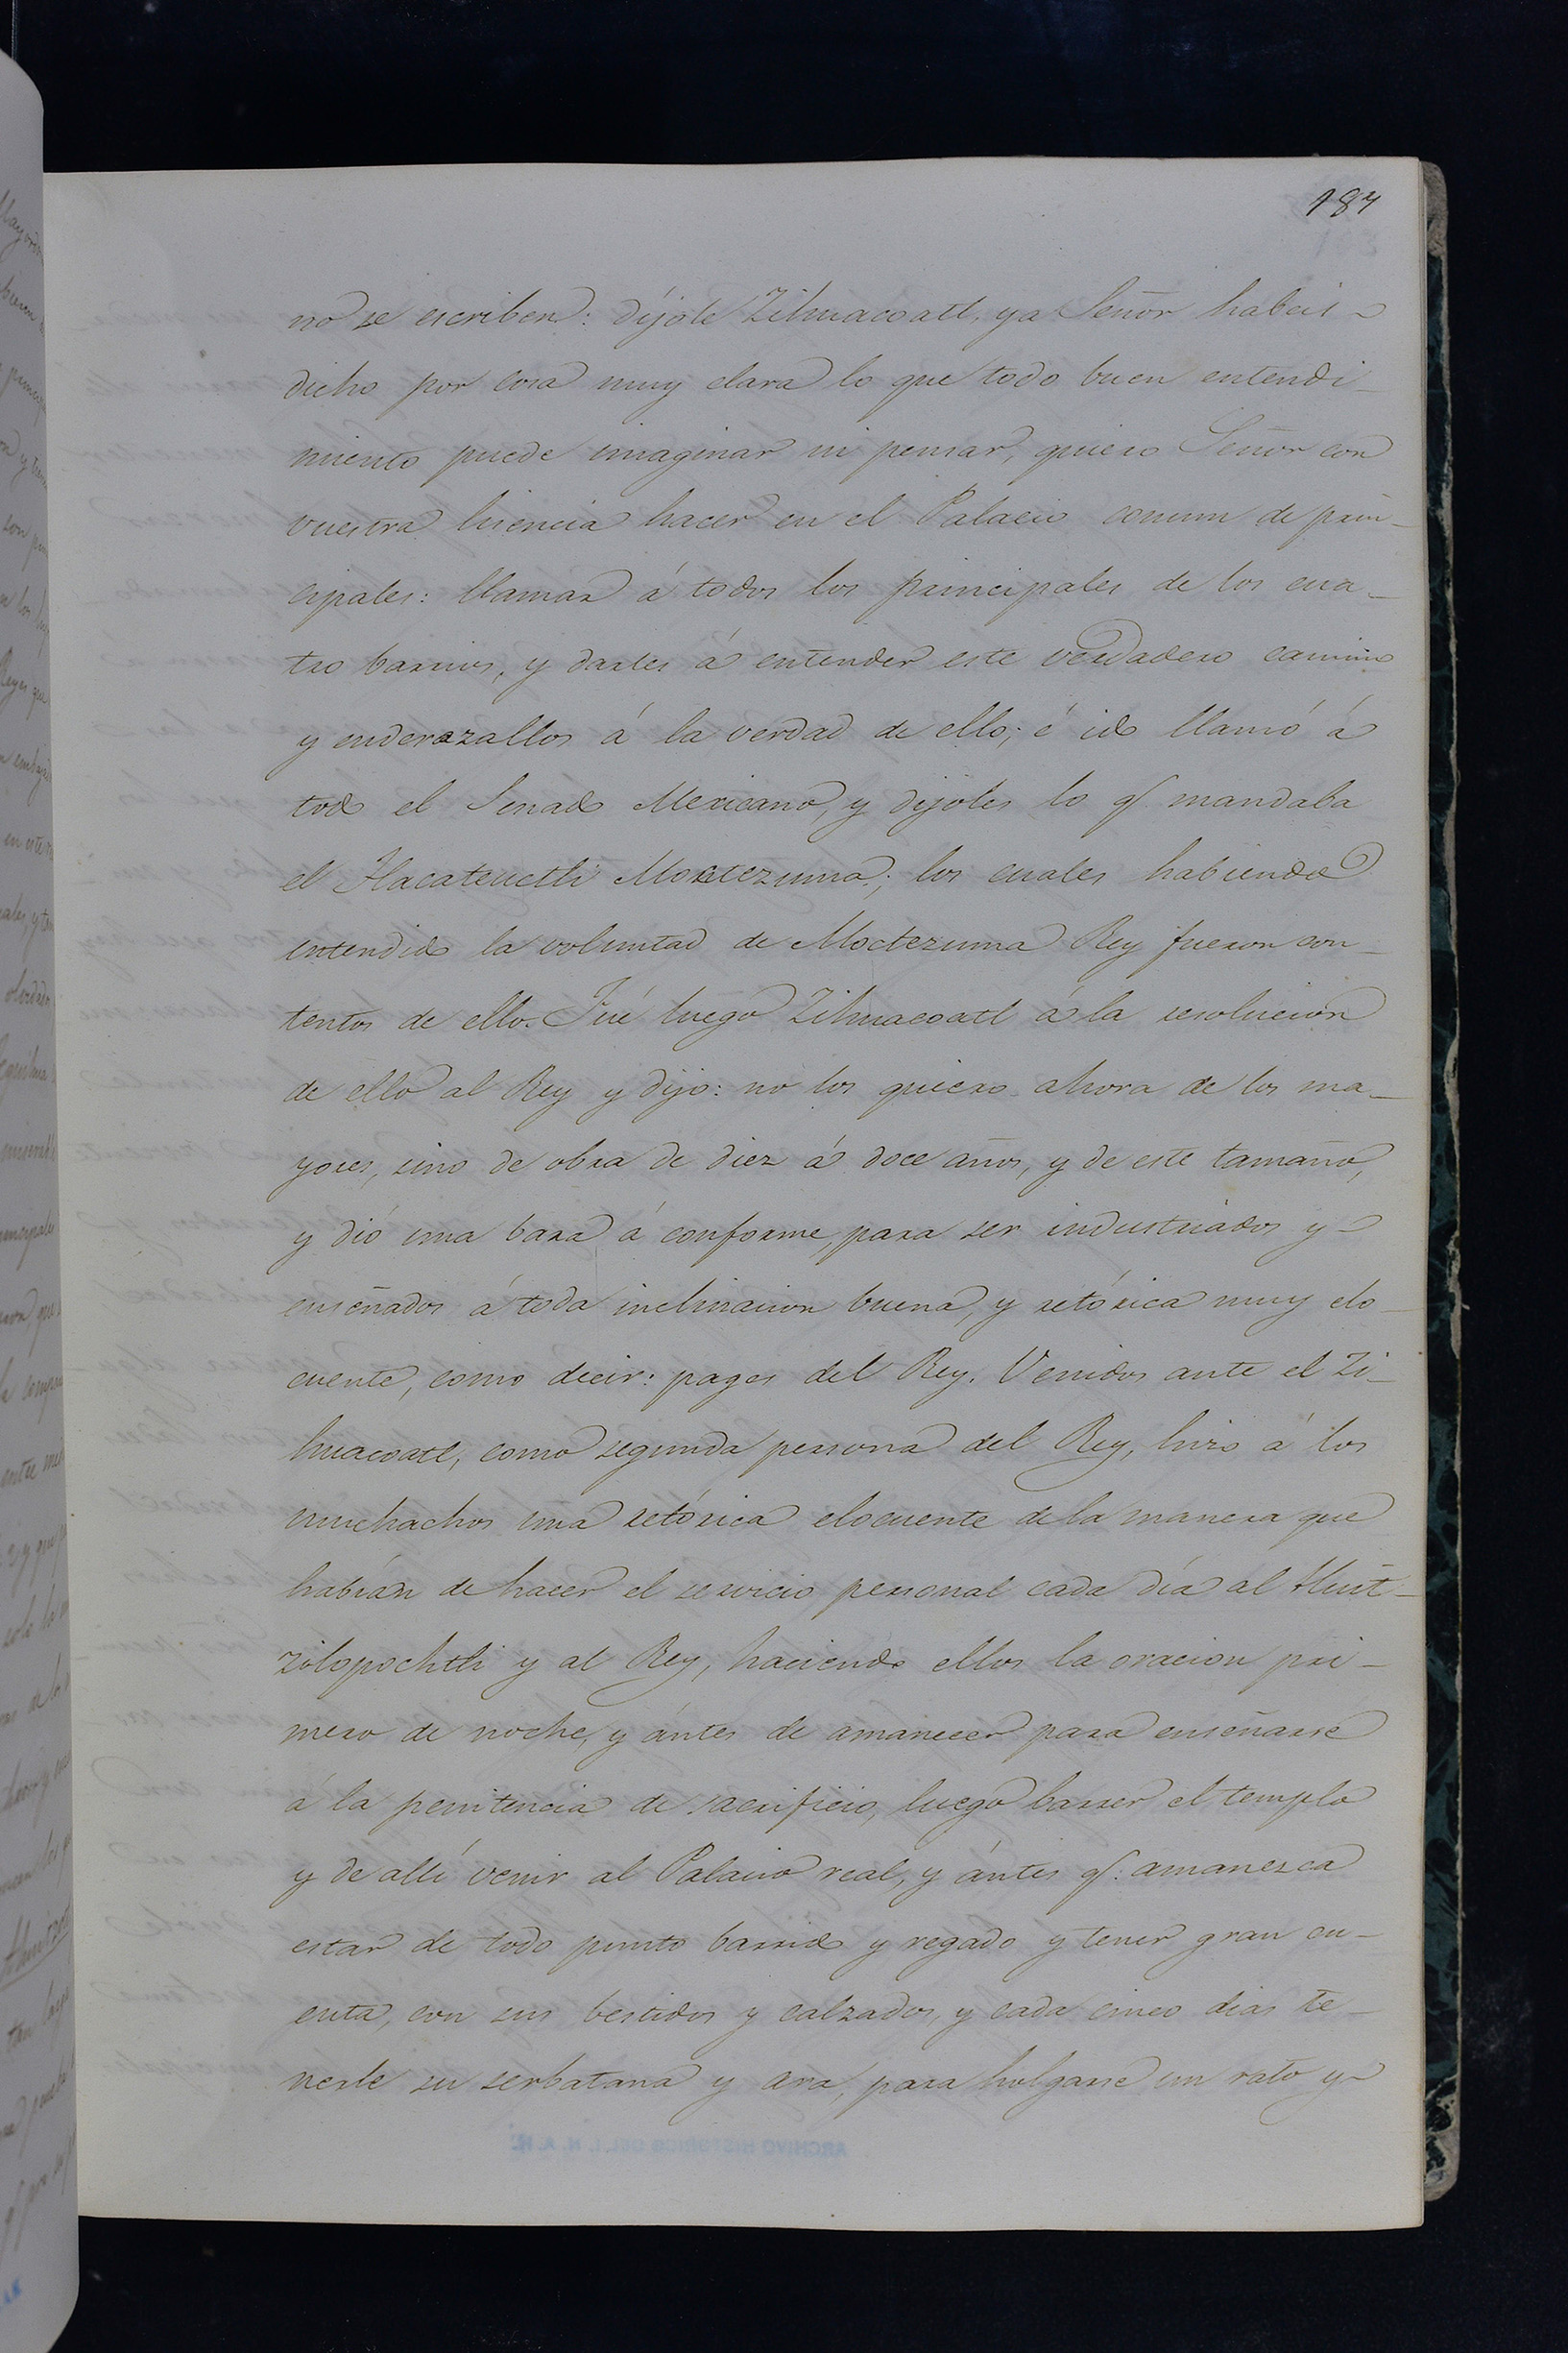 187
no se escriben: díjole Zihuacoatl, ya Señor habeis
dicho por cosa muy clara lo que todo buen entendi-
miento puede imaginar ni pensar, quiero Señor con
vuestra licencia hacer en el Palacio comun de prin-
cipales: llamar á todos los principales de los cua-
tro barrios, y darles á entender este verdadero camino
y enderezallos á la verdad de ello; é ido llamó á
todo el Senado Mexicano, y díjoles lo q.e mandaba
el Tlacateuctli Moctezuma; los cuales habiendo
entendido la voluntad de Moctezuma Rey fueron con-
tentos de ello. Fué luego Zihuacoatl á la resolucion
de ello al Rey y dijo: no los quiero ahora de los ma-
yores, sino de obra de diez á doce años, y de este tamaño,
y dió una bara á conforme, para ser industriados y
enseñados á toda inclinacion buena, y retórica muy elo-
cuente, como decir: pages del Rey. Venidos ante el Zi-
huacoatl, como segunda persona del Rey, hizo á los
muchachos una retórica elocuente de la manera que
habían de hacer el servicio personal cada día al Huit-
zilopochtli y al Rey, haciendo ellos la oracion pri-
mero de noche, y ántes de amanecer para enseñarse
á la penitencia de sacrificio, luego barrer el templo
y de allí venir al Palacio real, y ántes q.e amanezca
estar de todo punto barrido y regado y tener gran cu-
enta, con sus bestidos y calzados, y cada cinco dias te-
nerle su serbatana y ara, para holgarse un rato y
ARCHIVO HISTORICO DEL I. N. A. H.